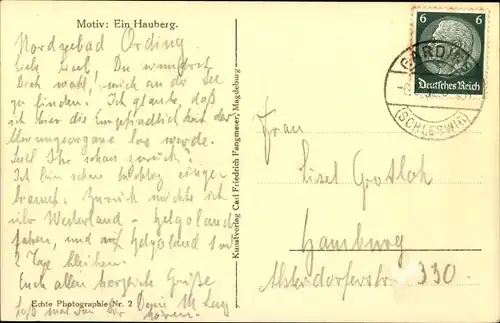 Motiv: Ein Hauberg.
Nordseebad Ording
Liebe Liesel, Du wunderst
Dich wohl, mich an der See
zu finden. Ich glaube, daß
ich hier die Empfindlichkeit der
los werde.
Seid Ihr schon zurück?
Ich bin schon
Zurück möchte ich
Westerland - Helgoland
fahren, und auf Helgoland 1 od
2 Tage bleiben.
Euch allen herzliche Grüße
Laß mal von Dir hören.
Echte Photographie Nr. 2
Kunstverlag Carl Friedrich Fangmeier, Magdeburg
6 6
Deutsches Reich
GARDING
(SCHLESWIG)
Frau
Liesel
Hamburg
Alsterdorferstr. 330.